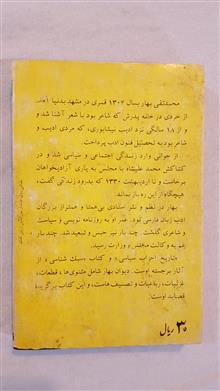 محمدتقی بهار بسال ۱۳۰۷ قمری در مشهد بدنیا آمد.
از خردی در خانه پدرش که شاعر بود با شعر آشنا شد و
و از ۱۸ سالگی نزد ادیب نیشابوری، که مردی ادیب و
شاعر بود به تحصیل فنون ادب پرداخت.
از جوانی وارد زندگی اجتماعی و سیاسی شد و در
کشاکش محمد علیشاه با مجلس به یاری آزادیخواهان
برخاست و تا اردیبهشت ۱۳۳۰ که بدرود زندگی گفت،
هیچگاه از این ره باز نماند.
بهار در نظم و نثر استادی بی‌همتا و همتراز بزرگان
ادب زبان فارسی بود. عمر او به روزنامه نویسی و سیاست
و شاعری گذشت. چند بار نیز حبس و تبعید شد. چند بار
هم به وکالت مجلس و وزارت رسید.
«تاریخ احزاب سیاسی» و کتاب «سبک شناسی» از
آثار برجسته اوست. دیوان بهار شامل مثنوی‌ها، قطعات،
غزلیات، رباعیات و تصنیف هاست، و این کتاب برگزیده
قصاید اوست.
۳۵ ریال